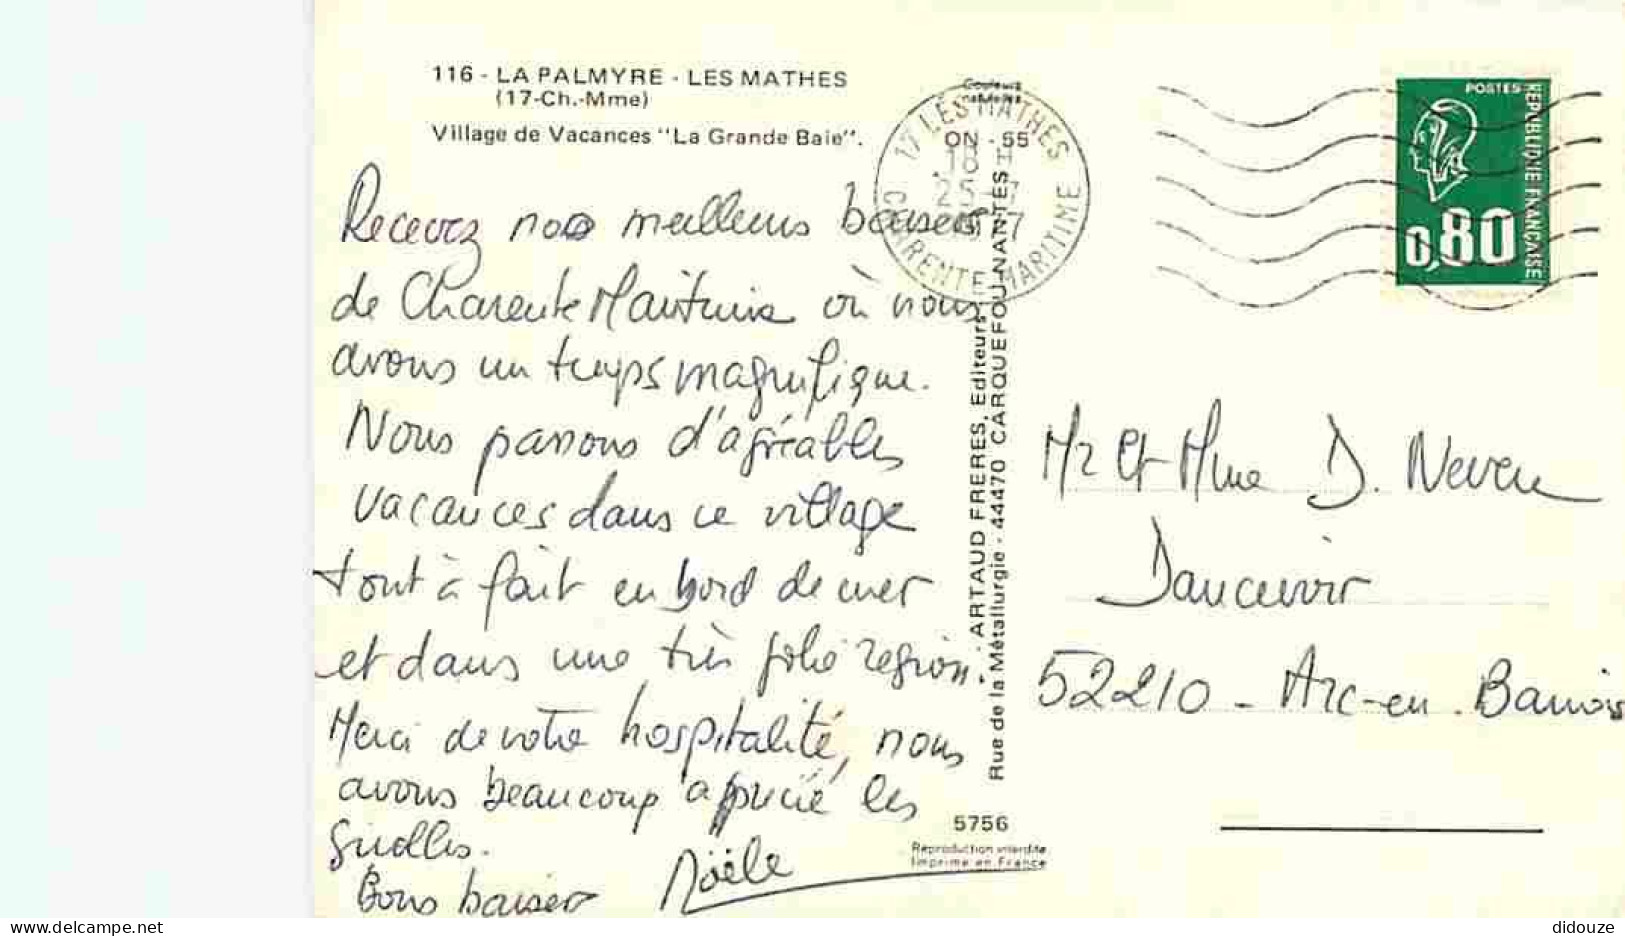 116 - LA PALMYRE - LES MATHES
(17-Ch.-Mme)
Village de Vacances "La Grande Baie".
Couleurs
naturelles
ON - 55
17 LES MATHES
25 - 7
CHARENTE MARITIME
POSTES
REPUBLIQUE FRANÇAISE
0,80
Recevez nos meilleurs baisers
de Charente Maritime où nous
avons un temps magnifique.
Nous passons d'agréables
vacances dans ce village
tout à fait en bord de mer
et dans une très jolie région.
Merci de votre hospitalité, nous
avons beaucoup apprécié les
girolles.
Bons baisers
Noële
ARTAUD FRERES, Editeurs
Rue de la Métallurgie - 44470 CARQUEFOU-NANTES
5756
Reproduction interdite
Imprimé en France
Mr et Mme D. Neveu
Dancevoir
52210 - Arc-en-Barrois
didouze